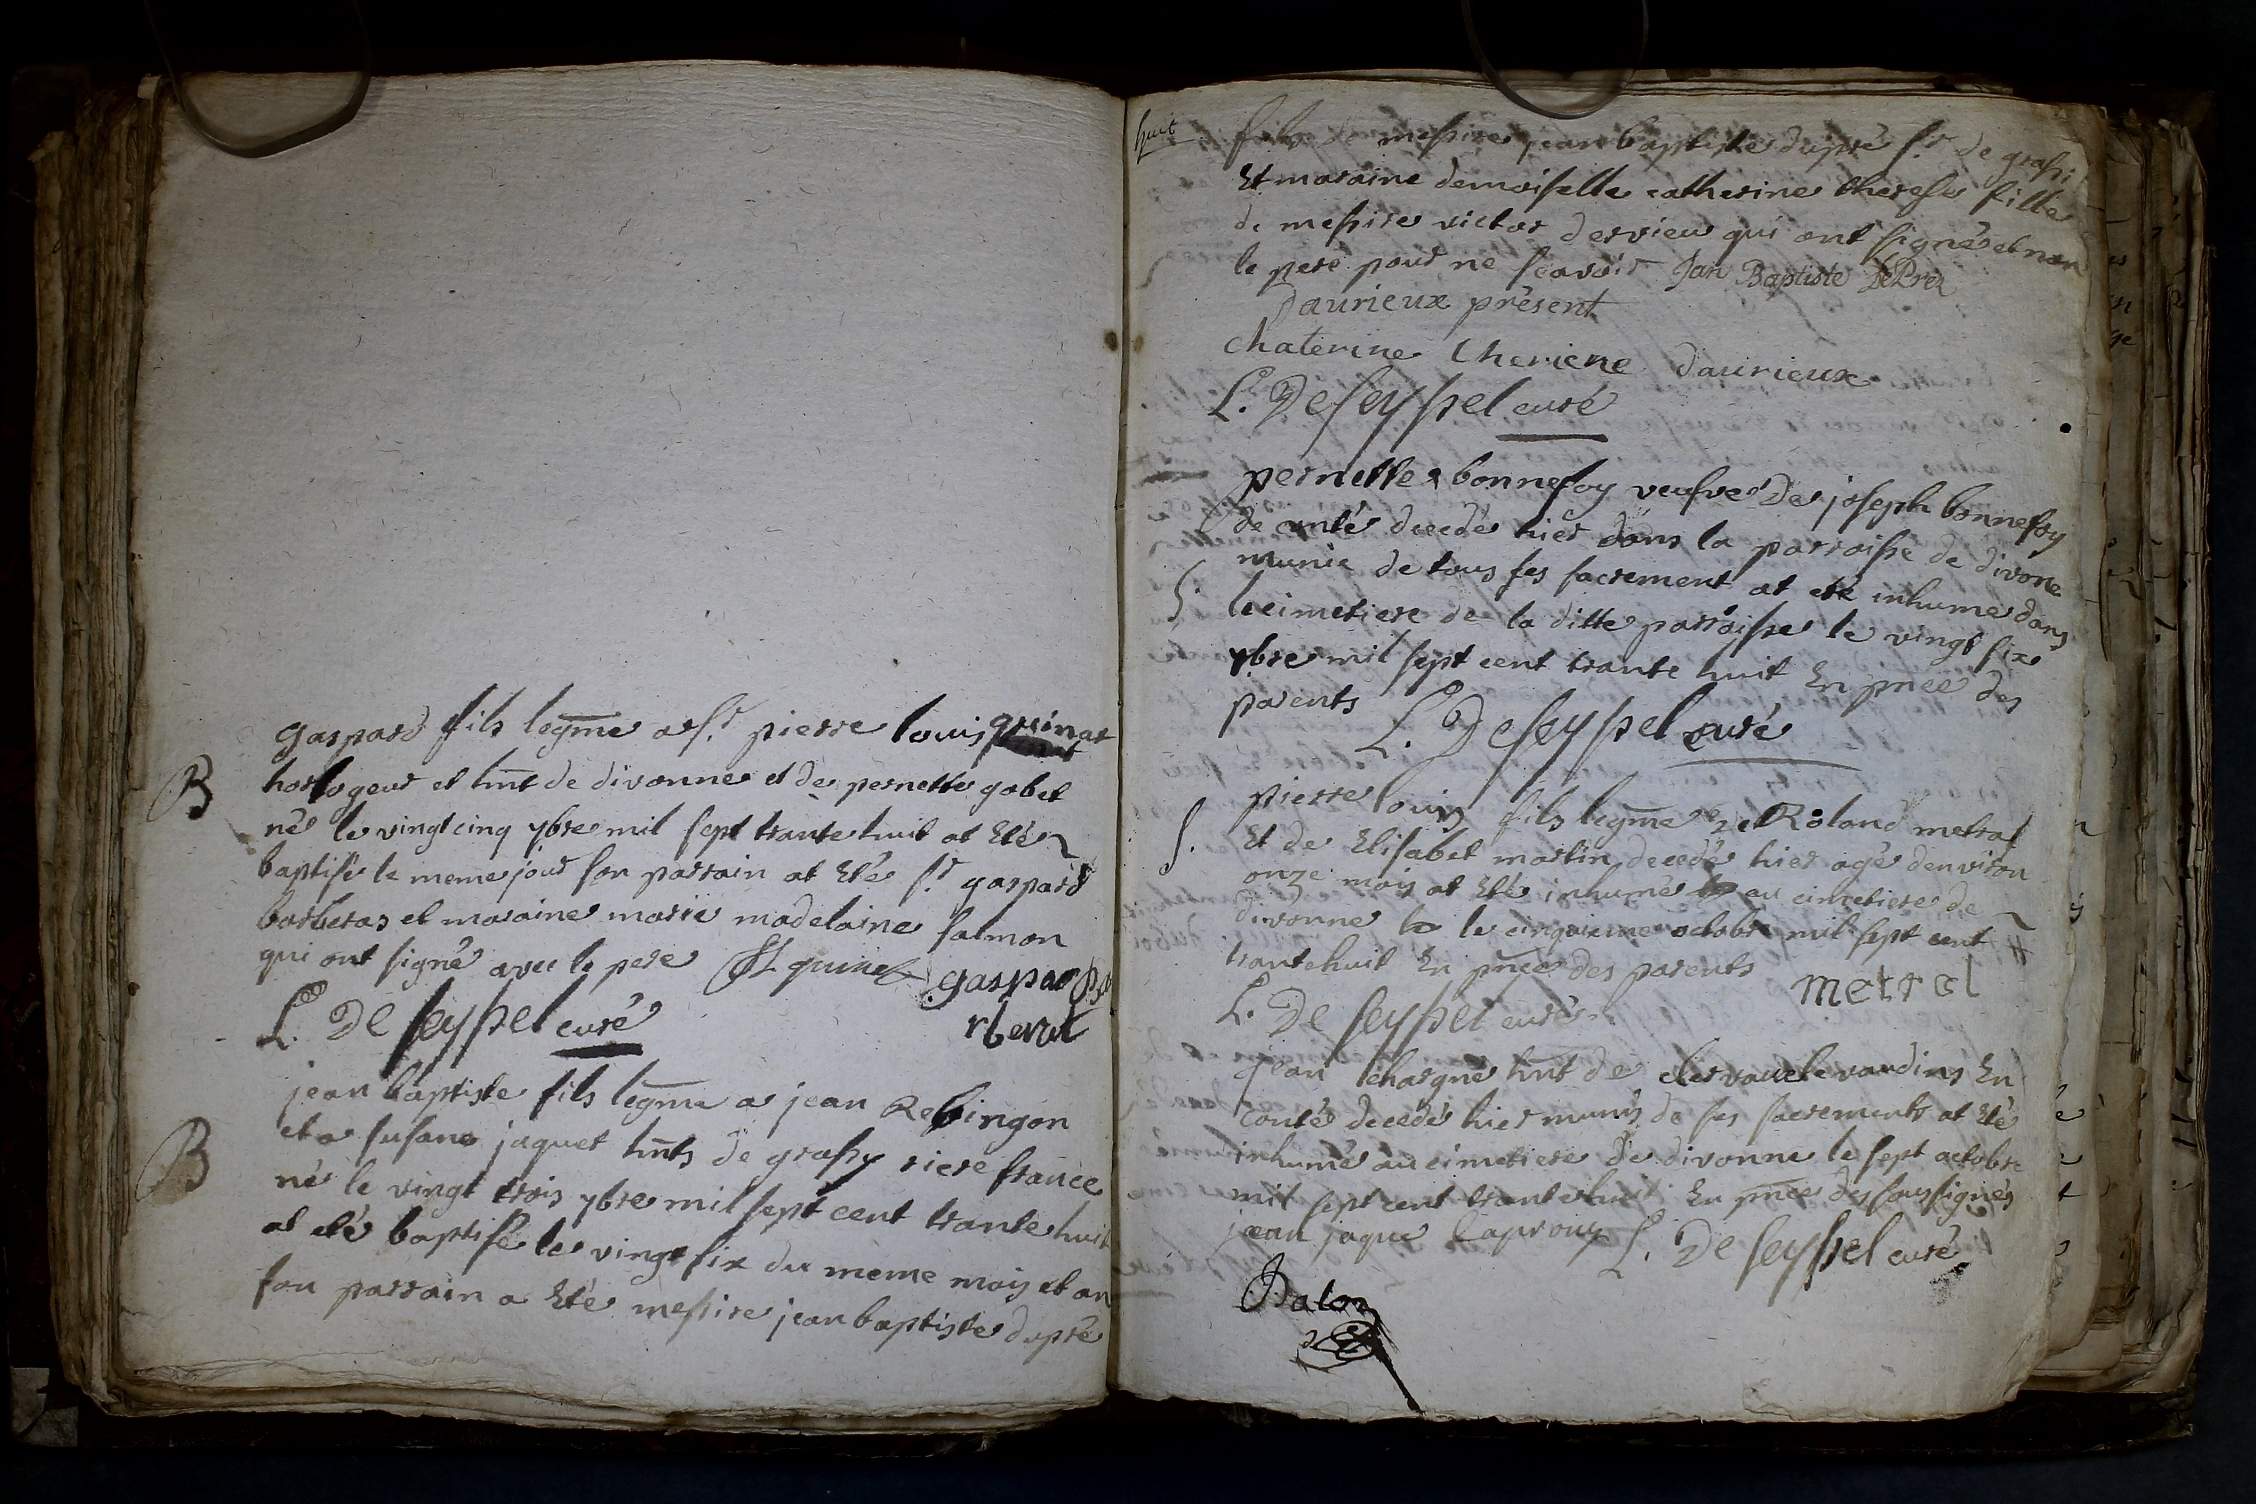 gaspard fils legme a sr pierre louis quinat
B
horlogeur et hnt de divonne et de pernette gobet
né le vingt cinq 7bre mil sept trante huit at Eté
baptisé le meme jour son parrain at Eté sr gaspard
barberas et maraine marie madelaine salmon
qui ont signé avec le pere quinet gaspar Ba
rberat
L. De seyssel curé
jean baptiste fils legme a jean Rebingon
B
et a susane jaquet hnts de grassy riere france
né le vingt trois 7bre mil sept cent trante huit
at eté baptisé le vingt six du meme mois et an
son parrain a Eté messire jean baptiste dupré
huit
fils de messire jean baptiste dupré sr de grassi
Et maraine demoiselle catherine therese fille
de messire victor dervieu qui ont signés et non
le pere pour ne scavoir Jan Baptiste DePrez
Daurieux présent
Chaterine theriene daurieux
L. De seyssel curé
pernette bonnefoy veufve De joseph bonnefoy
de conté decedé hier dans la parroisse de divone
munie de tous ses sacrement at eté inhume dans
S.
le cimetiere de la ditte parroisse le vingt six
7bre mil sept cent trante huit En pnce des
parents L. De seyssel curé
pierre louis fils legme de Roland metral
S.
Et de Elisabet martin decedé hier agé denviron
onze mois at Eté inhumé au cimetiere de
divonne le cinquieme octobre mil sept cent
trante huit En pnce des parents metral
L. De seyssel curé
jean chargné hnt de en
conté decedé hier munis de ses sacrements at Eté
inhumé au cimetiere de divonne le sept octobre
mil sept cent trante huit En pnce des soussignés
jean jaque Caprony L. De seyssel curé
Balon